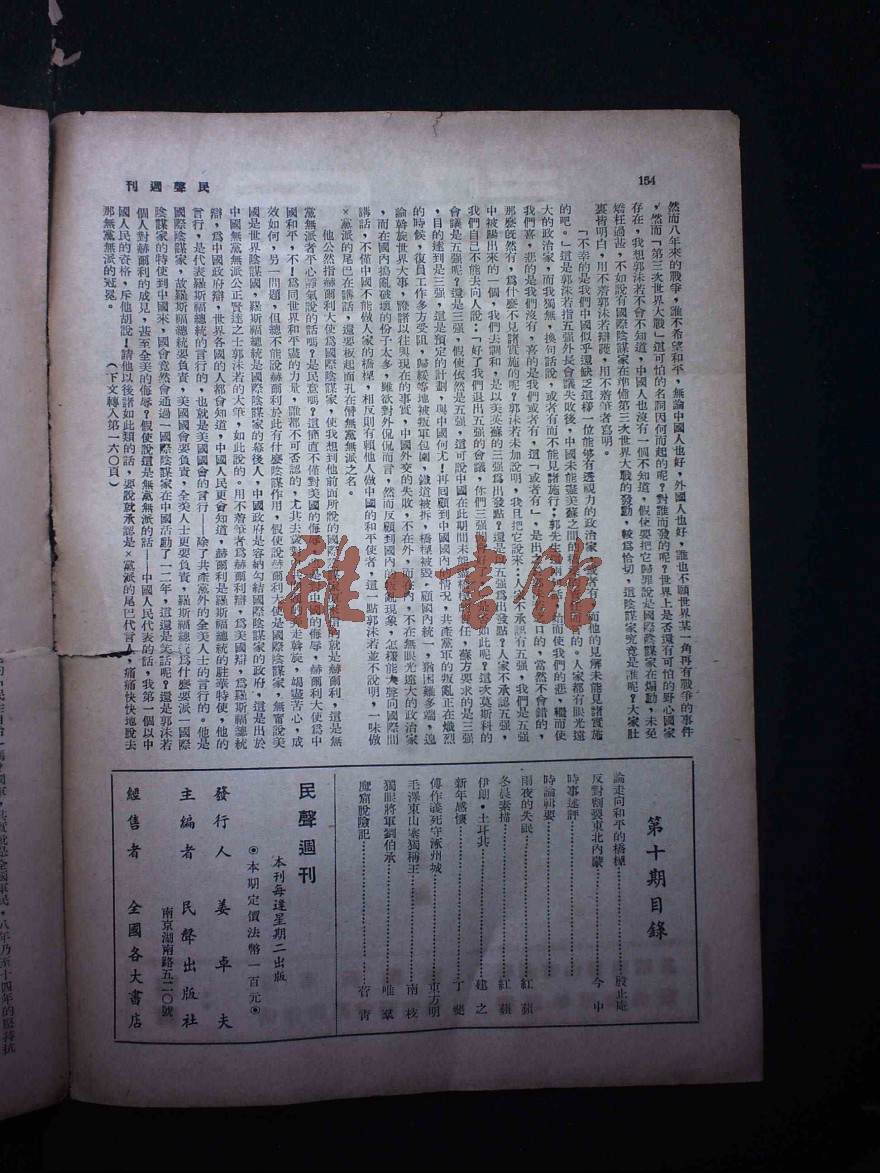 154
民聲週刊
然而八年來的戰爭，誰不希望和平，無論中國人也好，外國人也好，誰也不願世界某一角再有戰爭的事件
，然而「第三次世界大戰」這可怕的名詞因何而起的呢？對誰而發的呢？世界上是否還有可怕的野心國家
存在，我想郭沫若不會不知道，中國人也沒有一個不知道，假使要把它歸罪說是國際陰謀家在煽動，未免
矯枉過甚，不如說有國際陰謀家在準備第三次世界大戰的發動，較爲恰切，這陰謀家究竟是誰呢？大家肚
裏皆明白，用不着郭沫若辯護，用不着筆者寫明。
「不幸的是我們中國似乎還缺乏這樣一位能够有透視力的政治家，或者有
而他的見解未能見諸實施
的吧。」這是郭沫若指五强外長會議失敗後，中國未能盡美蘇之間的
人家都有眼光遠
大的政治家，而我獨無，換句話說，或者有而不能見諸施行；郭先生
而使我們的悲，繼而使
我們喜，悲的是我們沒有，喜的是我們或者有，這「或者有」，是出
口的，當然不會錯的，
那麼旣然有，爲什麼不見諸實施的呢？郭沫若未加說明，我且把它說來：
家不承認有五强，我們是五强
中被踢出來的一個，我們去調和，是以美英蘇的三强爲出發點？還是以五强爲出發點？人家不承認五强，
我們自己不能去向人說：「好了我們退出五强的會議，你們三强
如此呢？這次莫斯科的
會議是五强呢？還是三强，假使依然是五强，這可說中國在此期間未
任，蘇方要求的是三强
，目的達到是三强，這是預定的計劃，與中國何尤！再回顧到中國國內
情况，共產黨軍的叛亂正在熾烈
的時候，復員工作多方受阻，歸綏等地被叛軍包圍，鐵道被拆，橋樑被毀，顧國內統一，猶困難多端，遑
論斡旋世界大事，證諸以往與現在的事實，中國外交的失敗，不在外，而
內，不在無眼光遠大的政治家
，而在國內搗亂破壞的份子太多，雖欲對外侃侃而言，然而反顧到國內的
亂現象，怎樣能大聲向國際間
講話，不僅中國不能做人家的橋樑，相反則有賴他人做中國的和平使者，這一點郭沫若並不說明，一味做
×黨派的尾巴在講話，還要板起面孔在僭無黨無派之名。
他公然指赫爾利大使爲國際陰謀家，使我想到他前面所說的國際
的就是赫爾利，這是無
黨無派者平心靜氣說的話嗎？是民意嗎？這簡直不僅對美國的侮辱，
中國的侮辱，赫爾利大使爲中
國和平，不！爲同世界和平盡的力量，誰都不可否認的，尤其去歲對
走斡旋，竭盡苦心，成
效如何，另一問題，但總不能說赫爾利於此有什麼陰謀作用，假使說赫爾利大使是國際陰謀家，無甯說美
國是世界陰謀國，羅斯福總統是國際陰謀家的幕後人，中國政府是容納勾結國際陰謀家的政府，這是出於
中國無黨無派公正賢達之士郭沫若的大筆，如此說的。用不着筆者爲赫爾利辯，爲美國辯，爲羅斯福總統
辯，爲中國政府辯，世界各國的人都會知道，中國人民更會知道，赫爾利是羅斯福總統的駐華特使，他的
言行，是代表羅斯福總統的言行的，也就是美國國會的言行——除了共產黨外的全美人士的言行的。他是
國際陰謀家，故羅斯福總統要負責，美國國會要負責，全美人士更要負責，羅斯福總統爲什麼要派一國際
陰謀家的特使到中國來，國會竟然會通過一國際陰謀家在中國活動了一二年，這還是笑話呢？還是郭沫若
個人對赫爾利的成見，甚至全美的侮辱？假使說這是無黨無派的話——中國人民代表的話，我第一個以中
國人民的資格，斥他胡說！請他以後諸如此類的話，要說就承認是×黨派的尾巴代言人，痛痛快快地脫去
那無黨無派的冠冕。
（下文轉入第一六〇頁）
第十期目錄
論走向和平的橋樑……殷止庵
反對割裂東北內蒙……今中
時事述評
時論輯要
雨夜的失眠……紅蘋
冬晨素描……紅蘋
伊朗・土耳其……建之
新年感懷……丁
傅作義死守涿州城……東方明
毛澤東山寨獨稱王……南枝
獨眼將軍劉伯承……唯羣
魔窟脫險記……菅靑
民聲週刊
本刊每逢星期二出版
◉本期定價法幣一百元◉
發行人 姜卓夫
主編者 民聲出版社
南京湖南路五二〇號
經售者 全國各大書店
雜·書館